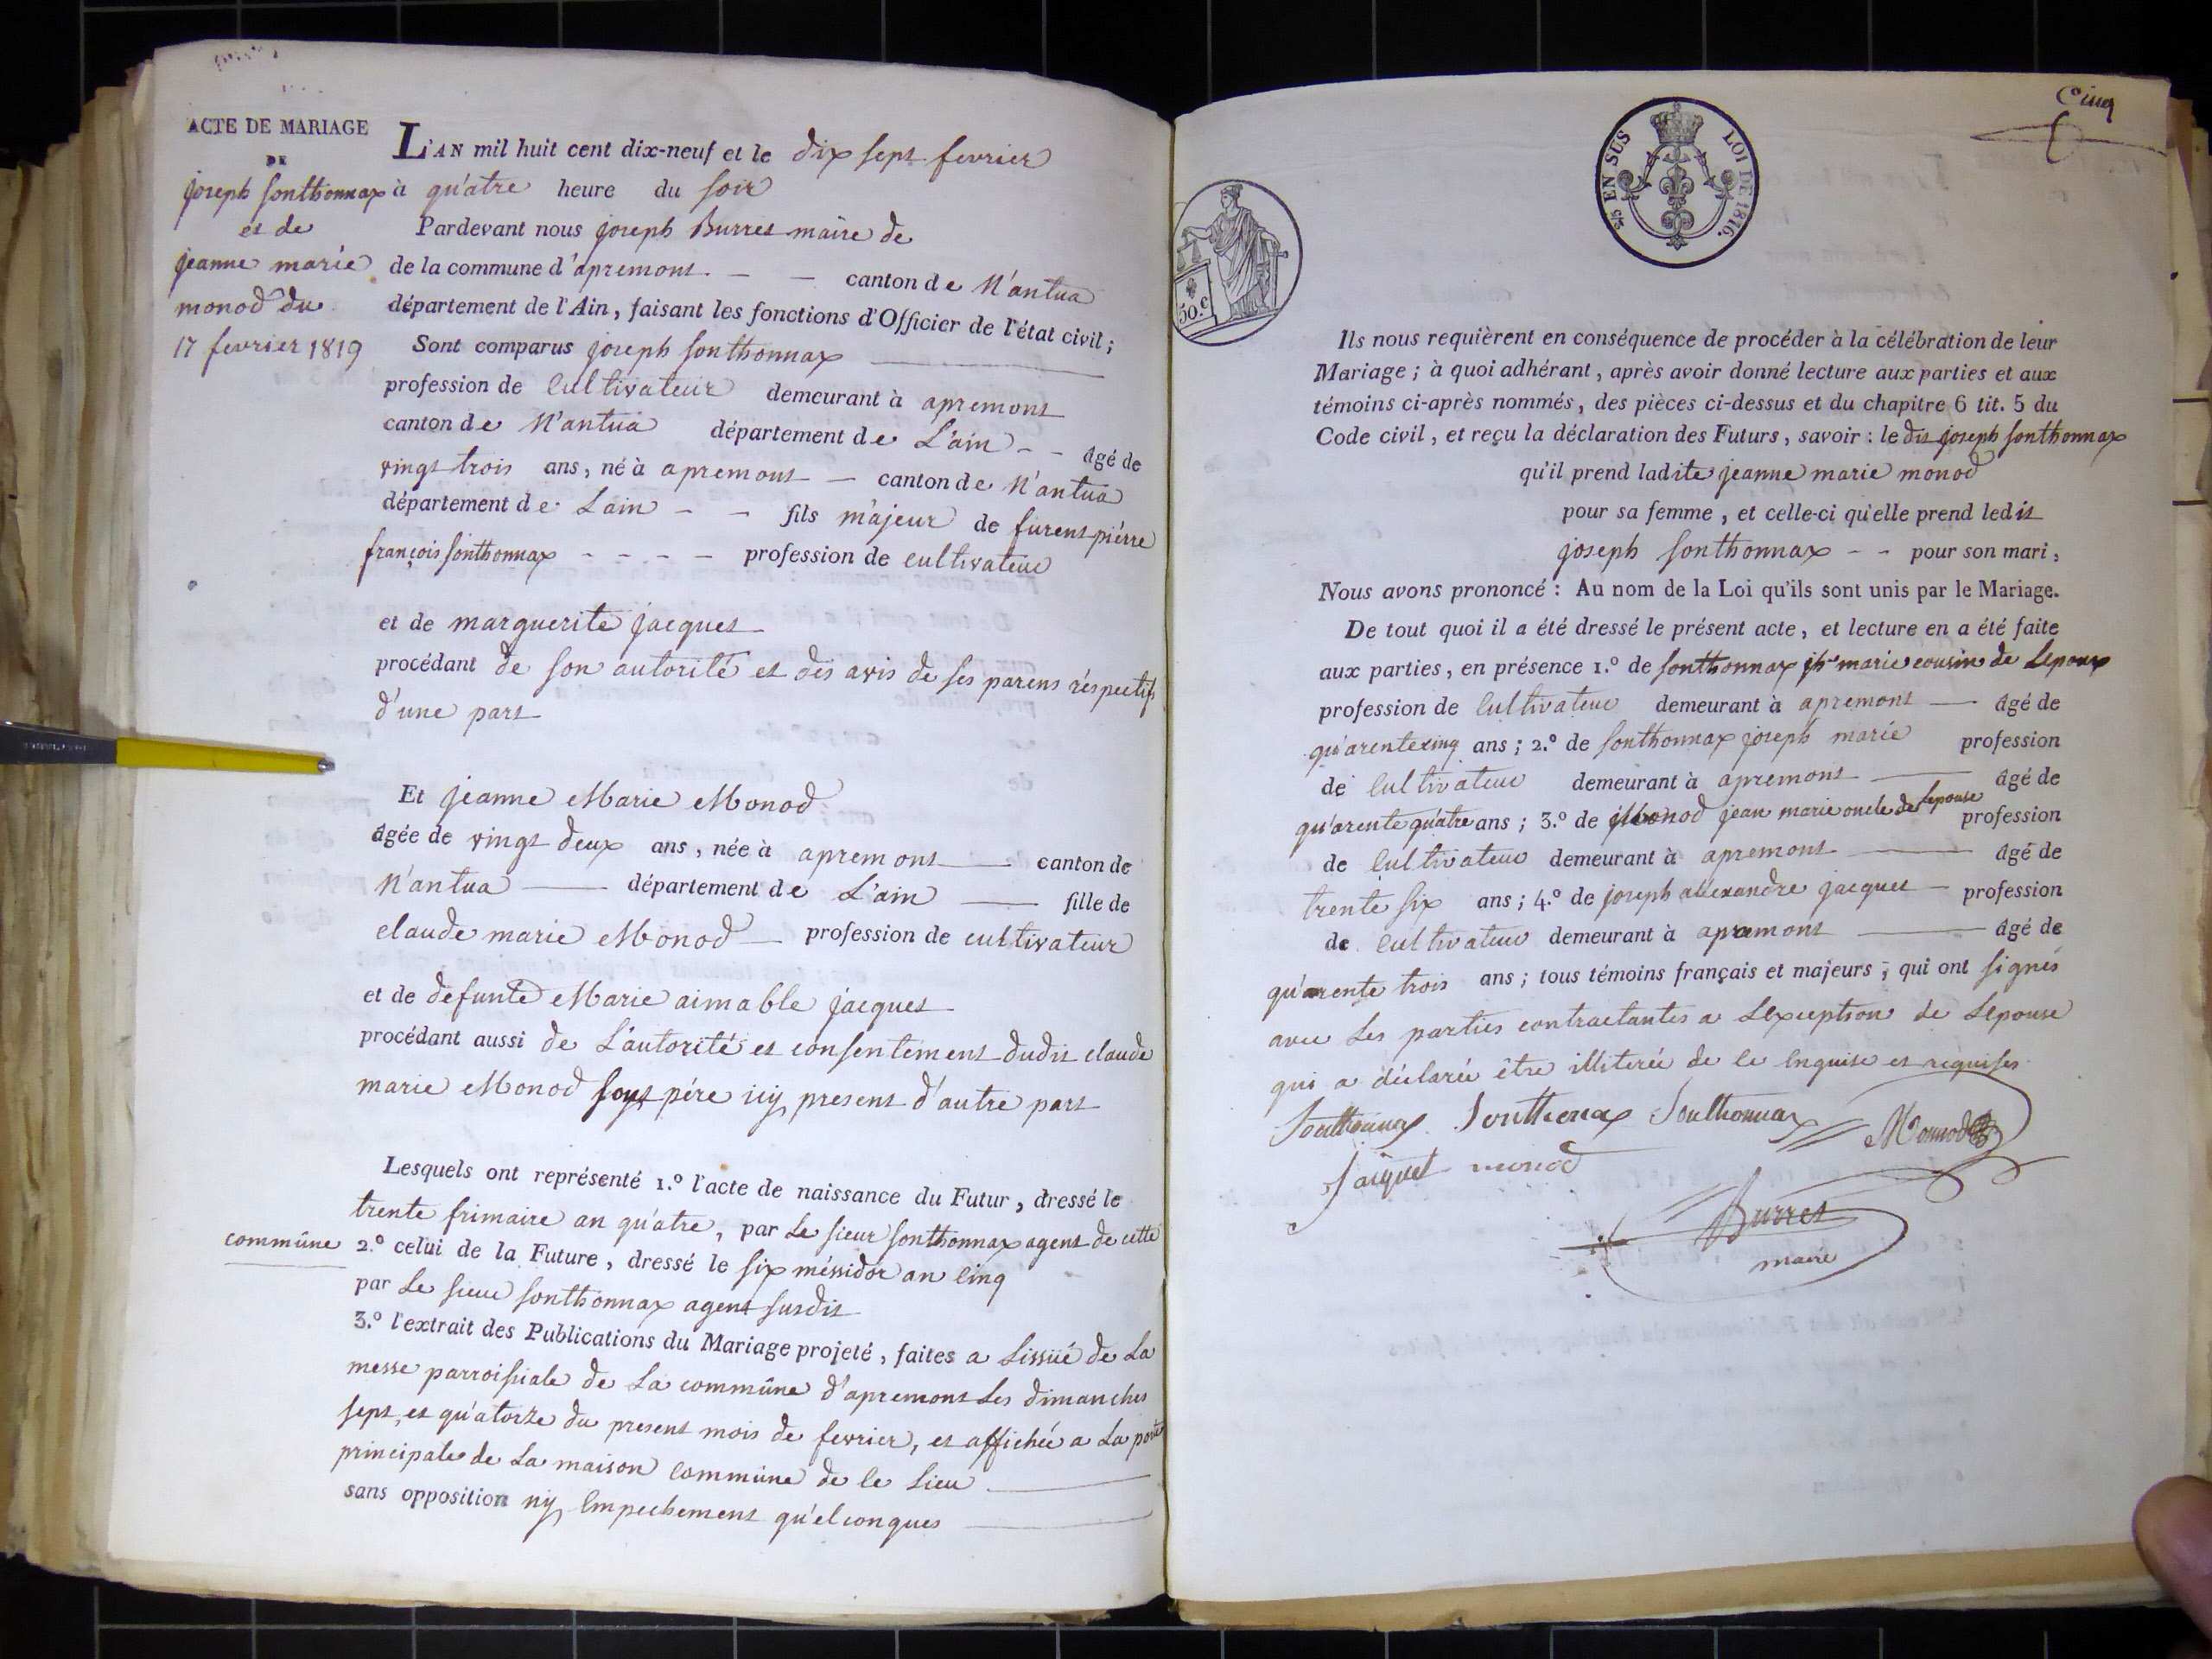 ACTE DE MARIAGE
DE
joseph Sonthonnax
et de
jeanne marie
monod du
17 fevrier 1819
L'AN mil huit cent dix-neuf et le dix sept fevrier
à qu'atre heure du soir
Pardevant nous joseph Burret maire de
de la commune d'apremont - - canton de N'antua
département de l'Ain, faisant les fonctions d'Officier de l'état civil;
Sont comparus joseph Sonthonnax
profession de Cultivateur demeurant à apremont
canton de N'antua département de L'ain - - âgé de
vingt trois ans, né à apremont - canton de N'antua
département de Lain - - fils m'ajeur de furent pierre
françois Sonthonnax - - - - profession de cultivateur
et de marguerite jacquet
procédant de son autorité et des avis de ses parens réspectifs
d'une part
Et jeanne Marie Monod
âgée de vingt deux ans, née à apremont canton de
N'antua département de L'ain fille de
claude marie Monod profession de cultivateur
et de defunte Marie aimable jacquet
procédant aussi de L'autorité et consentement dudit claude
marie Monod son père icy present d'autre part
Lesquels ont représenté 1.º l'acte de naissance du Futur, dressé le
trente frimaire an qu'atre, par Le sieur Sonthonnax agent de cette
commûne
2.º celui de la Future, dressé le six méssidor an Cinq
par Le sieur Sonthonnax agent susdit
3.º l'extrait des Publications du Mariage projeté, faites a Lissüé de La
messe parroissiale de La commûne d'apremont Les dimanches
sept, et qu'atorze du present mois de fevrier, et affichée a La porte
principale de La maison Commune de Ce Lieu
sans opposition ny Empechement qu'elconques
Cinq
2/5 EN SUS
LOI DE 1816.
50.c
Ils nous requièrent en conséquence de procéder à la célébration de leur
Mariage; à quoi adhérant, après avoir donné lecture aux parties et aux
témoins ci-après nommés, des pièces ci-dessus et du chapitre 6 tit. 5 du
Code civil, et reçu la déclaration des Futurs, savoir: le dit joseph Sonthonnax
qu'il prend ladite jeanne marie monod
pour sa femme, et celle-ci qu'elle prend ledit
joseph Sonthonnax - - pour son mari,
Nous avons prononcé: Au nom de la Loi qu'ils sont unis par le Mariage.
De tout quoi il a été dressé le présent acte, et lecture en a été faite
aux parties, en présence 1.º de Sonthonnax jh marie cousin de Lepoux
profession de Cultivateur demeurant à apremont âgé de
qu'arentecinq ans; 2.º de Sonthonnax joseph marie profession
de Cultivateur demeurant à apremont âgé de
qu'arente qu'atre ans; 3.º de Monod jean marie oncle de Lepouse profession
de Cultivateur demeurant à apremont âgé de
trente six ans; 4.º de joseph allexandre jacquet profession
de Cultivateur demeurant à apremont âgé de
qu'arente trois ans; tous témoins français et majeurs, qui ont signés
avec Les parties contractantes a Lexception de Lepouse
qui a déclarée être illiterée de ce Enquise et requises
Sonthonnax Sonthonax Sonthonnax Monod
Jaiquet monod
Burret
maire